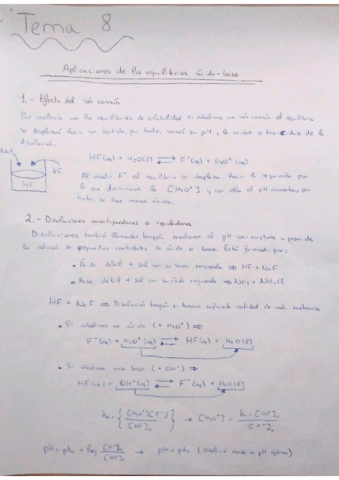 Tema 8
Aplicaciones de los equilibrios ácido-base
1.- Efecto del ión común
Por analogía con los equilibrios de solubilidad si añadimos un ión común el equilibrio
se desplazará hacia un sentido, por tanto, variará su pH, la acidez o basicidad de la
disolución.
NaF
HF
HF(aq) + H₂O(l) ⇄ F⁻(aq) + H₃O⁺(aq)
Al añadir F⁻ el equilibrio se desplaza hacia la izquierda por
lo que disminuye la [H₃O⁺] y con ello el pH aumenta, por
tanto, se hace menos ácida.
2.- Disoluciones amortiguadoras o reguladoras
Disoluciones también llamadas tampón mantienen el pH casi constante a pesar de
la adición de pequeñas cantidades de ácido o base. Está formada por:
• Ácido débil + sal con su base conjugada ⇒ HF + NaF
• Base débil + sal ácido conjugado ⇒ NH₃ + NH₄Cl
HF + NaF ⇒ Disolución tampón si tenemos suficiente cantidad de cada sustancia
• Si añadimos un ácido (+ H₃O⁺) ⇒
F⁻(aq) + H₃O⁺(aq) ⇄ HF(aq) + H₂O(l)
• Si añadimos una base (+ OH⁻) ⇒
HF(aq) + OH⁻(aq) ⇄ F⁻(aq) + H₂O(l)
ka = { [H₃O⁺][F⁻] / [HF]₀ } → [H₃O⁺] = ka · [HF]₀ / [F⁻]₀
pH = pka + log [F⁻]₀ / [HF]₀ → pH = pka